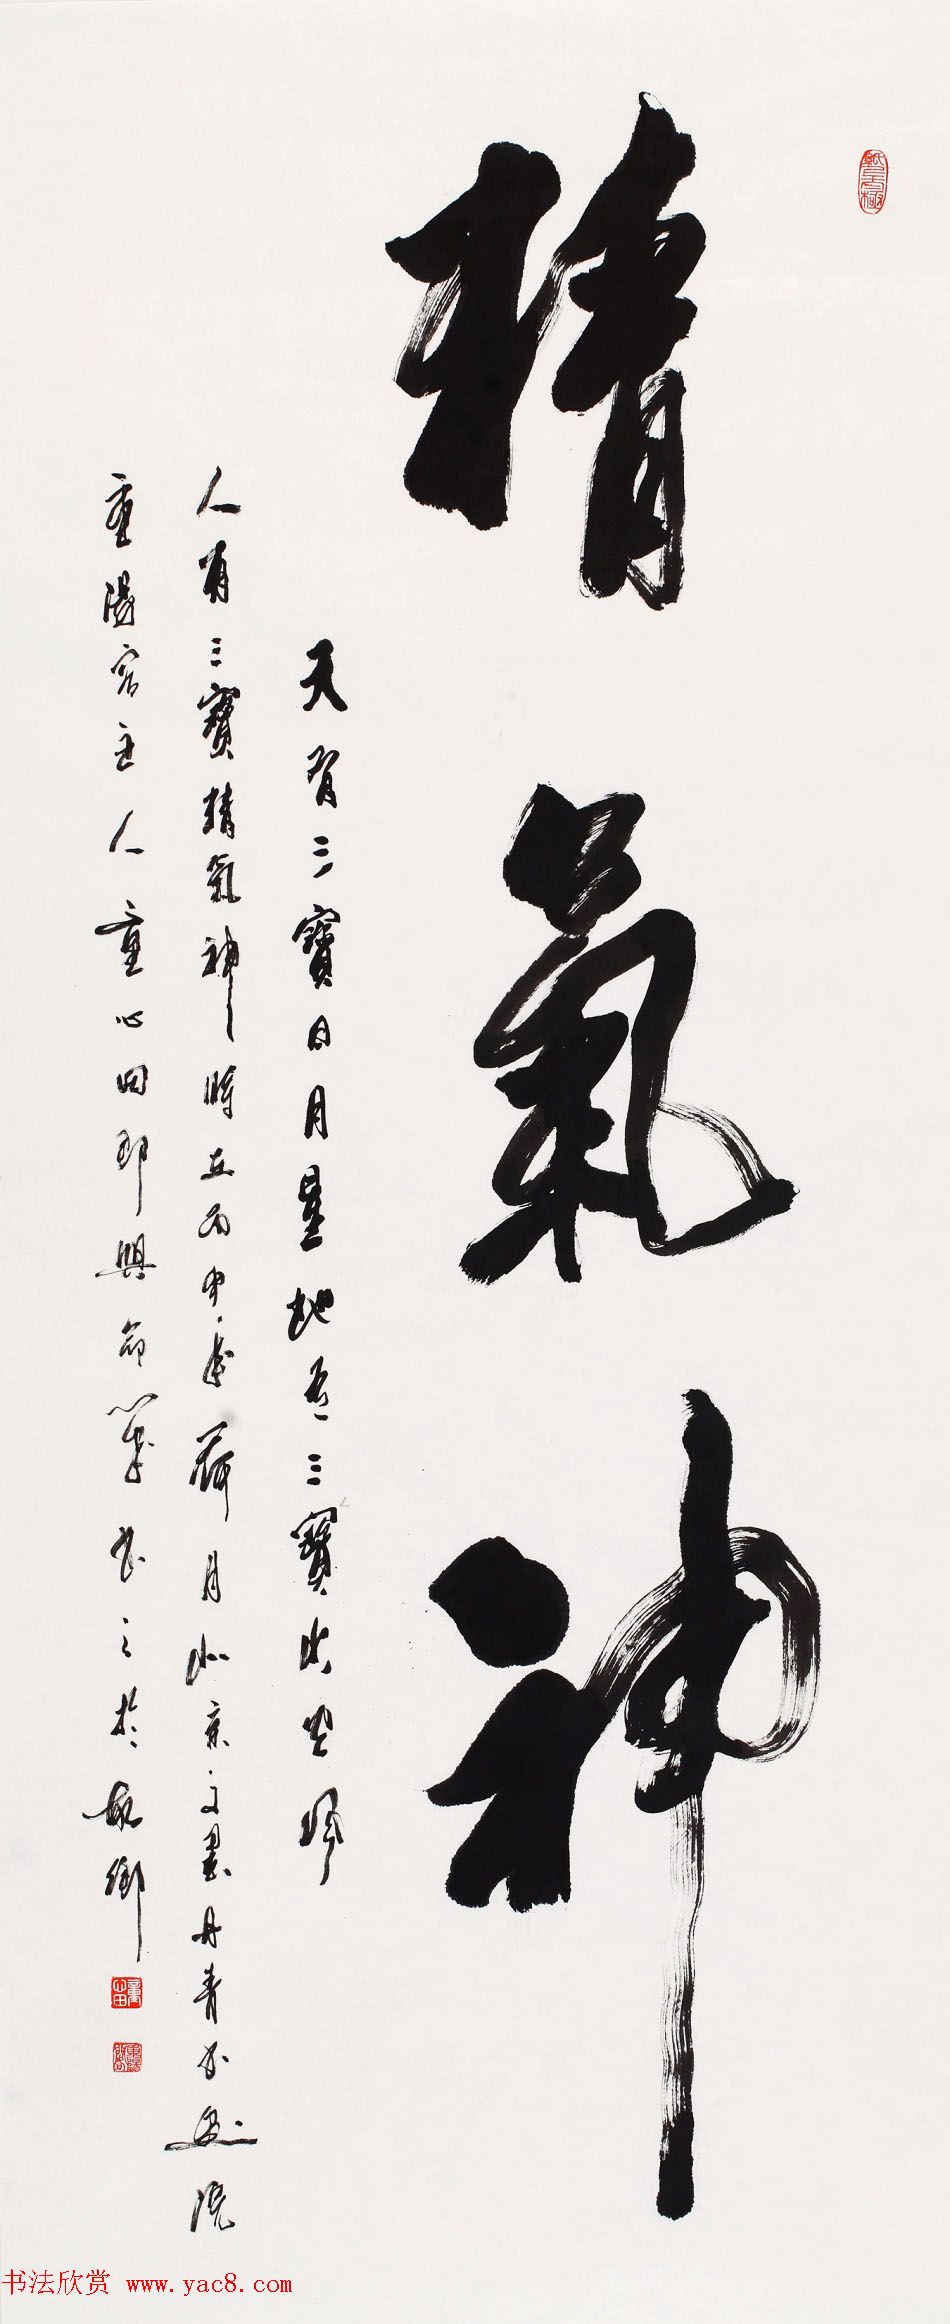 精氣神
天有三寶日月星地有三寶水火風
人有三寶精氣神時在丙申年荷月北京文墨丹青書畫院
重陽宮主人童心田即興命筆書之於故鄉
童心田
书法欣赏 www.yac8.com